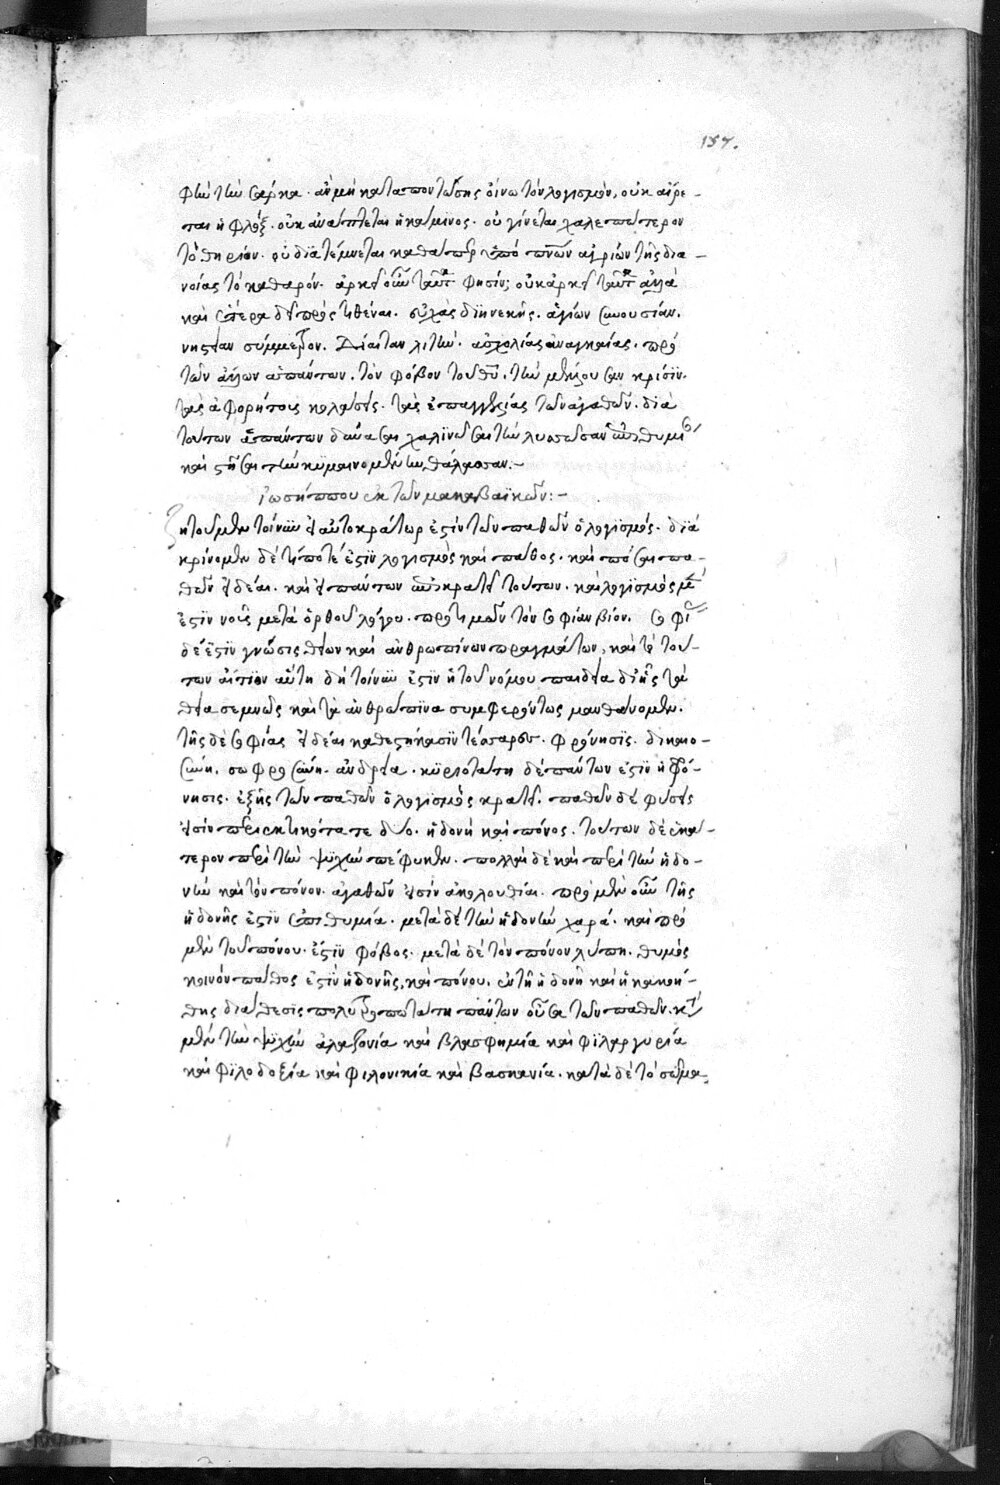 157.
φὴν τὴν σάρκα. ἂν μὴ καταποντώσῃς οἴνω τὸν λογισμὸν, οὐκ αἴρε-
ται ἡ φλόξ. οὐκ ἀνάπτεται ἡ κάμινος. οὐ γίνεται χαλεπώτερον
τὸ θηρίον. οὐ διατέμνεται καθάπερ ὑπό τινων αἰτιῶν τῆς δια-
νοίας τὸ καθαρόν. ἀρκεῖ οὖν ταῦτα φησίν; οὐκ ἀρκεῖ ταῦτα ἀλλὰ
καὶ ἕτερα δεῖ προστιθέναι. εὐχὰς διηνεκῆς. ἁγίων συνουσίαν.
νηστείαν σύμμετρον. δίαιταν λιτὴν. ἀσχολίας ἀναγκαίας. πρὸ
τῶν ἄλλων ἁπάντων. τὸν φόβον τοῦ θεοῦ. τὴν μέλλουσαν κρίσιν.
τὰς ἀφορήτους κολάσεις. τὰς ἐπαγγελίας τῶν ἀγαθῶν. διὰ
τούτων ἁπάντων δυνάσαι χαλινῶσαι τὴν λυσσῶσαν ἐπιθυμίαν
καὶ στῆσαι τὴν κυμαινομένην θάλασσαν:-
ἰωσήππου ἐκ τῶν μακαβαϊκῶν:-
ζητοῦμεν τοίνυν εἰ αὐτοκράτωρ ἐστὶν τῶν παθῶν ὁ λογισμός. δια
κρίνομεν δὲ τί ποτέ ἐστιν λογισμὸς καὶ πάθος. καὶ πόσαι πα-
θῶν ἰδέαι. καὶ εἰ πάντων ἐπικρατεῖ τούτων. καὶ λογισμὸς μὲν
ἐστὶν νοῦς μετὰ ὀρθοῦ λόγου. προτιμῶν τὸν σοφίαν βίον. σοφία
δέ ἐστιν γνῶσις θείων καὶ ἀνθρωπίνων πραγμάτων, καὶ τὸ τού-
των αἴτιον αὕτη δὴ τοίνυν ἐστὶν ἡ τοῦ νόμου παιδεία δι ἧς τὰ
θεῖα σεμνῶς καὶ τὰ ἀνθρώπινα συμφερόντως μανθάνομεν.
τῆς δὲ σοφίας ἰδέαι καθεστήκασιν τέσσαρες. φρόνησις. δικαιο-
σύνη. σωφροσύνη. ἀνδρεία. κυριωτάτη δὲ πάντων ἐστὶν ἡ φρό-
νησις. ἐξ ἧς τῶν παθῶν ὁ λογισμὸς κρατεῖ. παθῶν δὲ φύσεις
εἰσὶν περιεκτικώταται δύο. ἡδονὴ καὶ πόνος. τούτων δὲ ἑκά-
τερον περὶ τὴν ψυχὴν πέφυκεν. πολλαὶ δὲ καὶ περὶ τὴν ἡδο-
νὴν καὶ τὸν πόνον. ἀγαθῶν εἰσὶν ἀκολουθίαι. πρὸ μὲν οὖν τῆς
ἡδονῆς ἐστὶν ἐπιθυμία. μετὰ δὲ τὴν ἡδονὴν χαρά. καὶ πρὸ
μὲν τοῦ πόνου. ἐστὶν φόβος. μετὰ δὲ τὸν πόνον λύπη. θυμὸς
κοινὸν πάθος ἐστὶν ἡδονῆς, καὶ πόνου. ἐν τῇ ἡδονῇ καὶ ἡ κακοή-
θης διάθεσις πολυτροπωτάτη πάντων οὖσα τῶν παθῶν. κατὰ
μὲν τὴν ψυχὴν ἀλαζονία καὶ βλασφημία καὶ φιλαργυρία
καὶ φιλοδοξία καὶ φιλονικία καὶ βασκανία. κατὰ δὲ τὸ σῶμα.